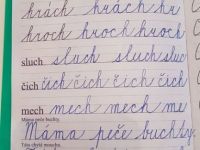 hrách hrách hr
hroch hroch hroch
sluch sluch sluch sluc
čich čich čich čich čich
mech mech mech me
Máma peče buchty.
Máma peče buchty.
Táta chytá mouchu.